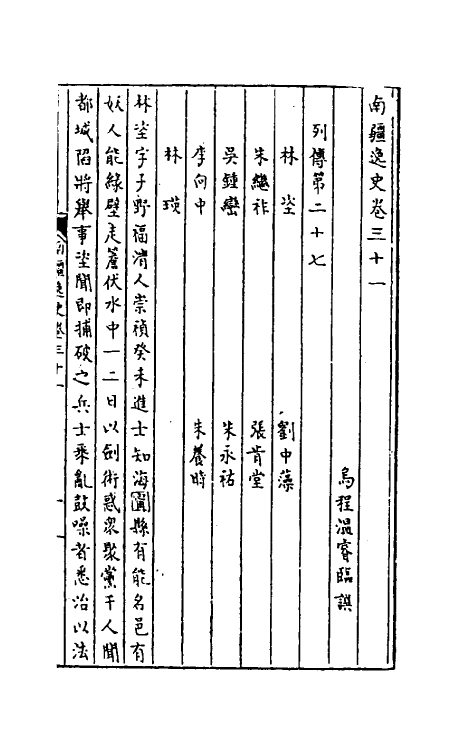 南疆逸史卷三十一
烏程溫睿臨譔
列傳第二十七
林垐　劉中藻
朱繼祚　張肯堂
吳鍾巒　朱永祐
李向中　朱養時
林瑛
林垐字子野福清人崇禎癸未進士知海寧縣有能名邑有
妖人能緣壁走簷伏水中一二日以劍術惑眾聚黨千人聞
都城陷將舉事垐聞即捕破之兵士乘亂鼓噪者悉治以法
南疆逸史卷三十一